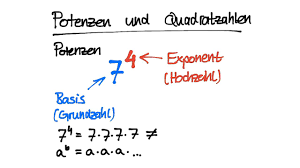 Potenzen und Quadratzahlen
Potenzen
7⁴ ← Exponent
(Hochzahl)
Basis
(Grundzahl)
7⁴ = 7·7·7·7 ≠
aᵇ = a·a·a·...